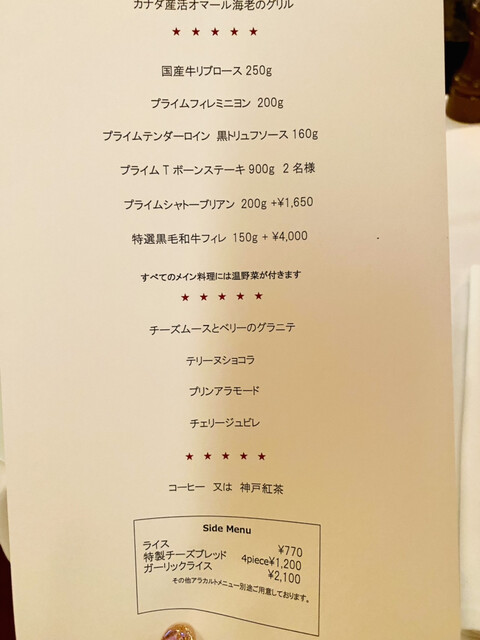 カナダ産活オマール海老のグリル
★ ★ ★ ★ ★
国産牛リブロース 250g
プライムフィレミニヨン 200g
プライムテンダーロイン 黒トリュフソース 160g
プライム T ボーンステーキ 900g 2 名様
プライムシャトーブリアン 200g +¥1,650
特選黒毛和牛フィレ 150g + ¥4,000
すべてのメイン料理には温野菜が付きます
★ ★ ★ ★ ★
チーズムースとベリーのグラニテ
テリーヌショコラ
プリンアラモード
チェリージュビレ
★ ★ ★ ★ ★
コーヒー 又は 神戸紅茶
Side Menu
ライス ¥770
特製チーズブレッド 4piece¥1,200
ガーリックライス ¥2,100
その他アラカルトメニュー別途ご用意しております。